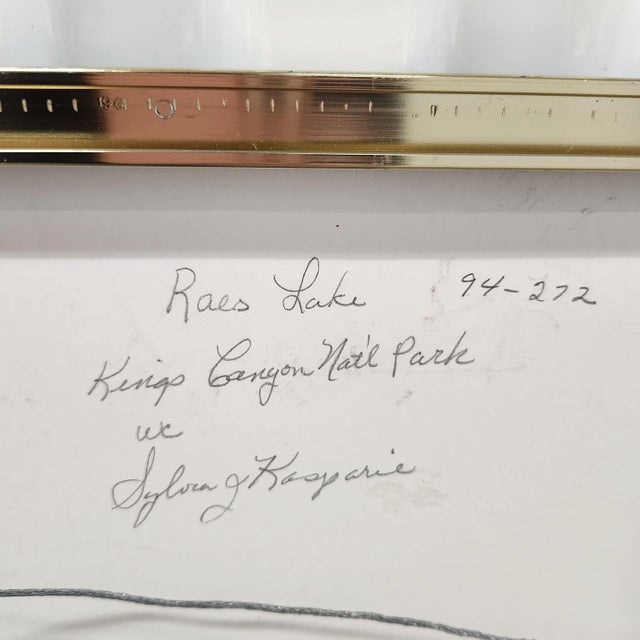 Raes Lake 94-272
Kings Canyon Nat'l Park
wc
Sylvia J Kasparie